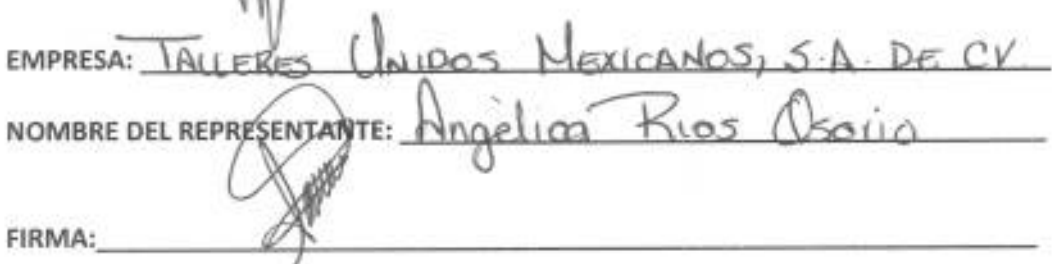 EMPRESA: TALLERES UNIDOS MEXICANOS, S.A. DE CV.
NOMBRE DEL REPRESENTANTE: Angélica Rios Osorio
FIRMA: